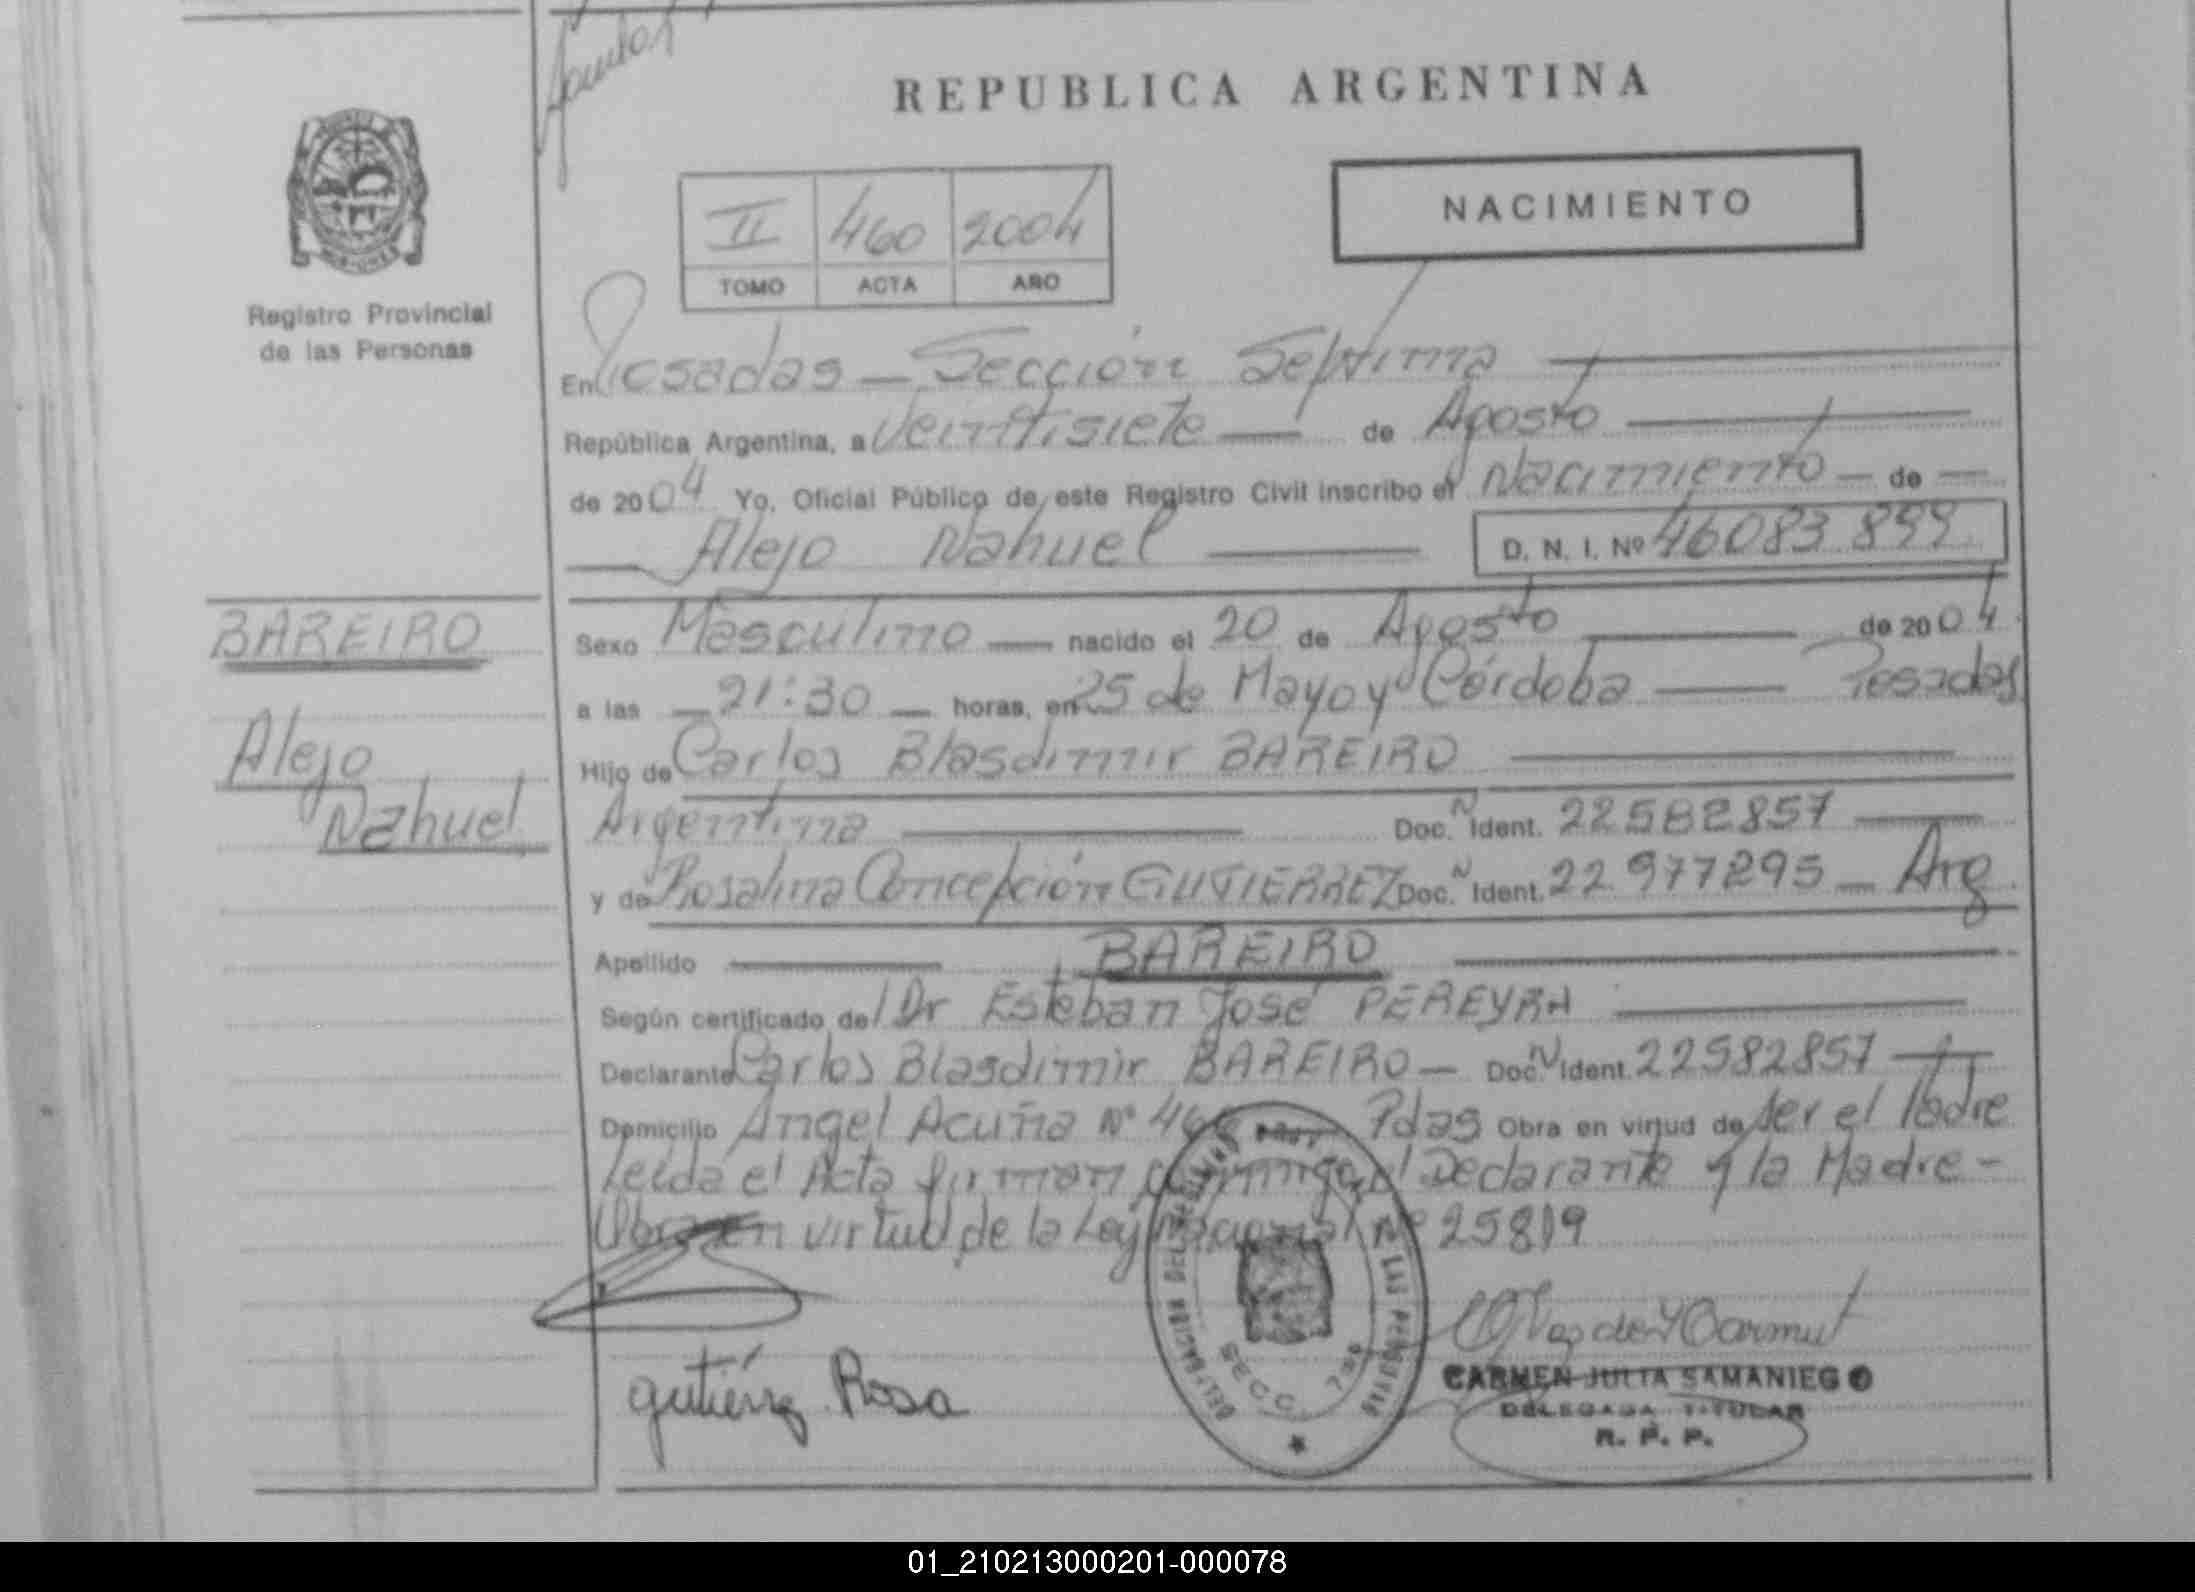 REPUBLICA ARGENTINA
NACIMIENTO
II 460 2004
TOMO ACTA AÑO
MISIONES
Registro Provincial
de las Personas
En Posadas — Sección Septima
República Argentina, a Veintisiete — de Agosto
de 2004 Yo, Oficial Público de este Registro Civil inscribo el Nacimiento — de —
Alejo Nahuel D. N. I. Nº 46083 899
BAREIRO
Alejo
Nahuel
Sexo Masculino — nacido el 20 de Agosto de 2004
a las — 21:30 — horas, en 25 de Mayo y Córdoba — Posadas
Hijo de Carlos Blasdimir BAREIRO
Argentina Doc. N Ident. 22582857
y de Rosalina Concepción GUTIERREZ Doc. N Ident. 22 977295 — Arg
Apellido BAREIRO
Según certificado de Dr Esteban José PEREYRA
Declarante Carlos Blasdimir BAREIRO — Doc. N Ident. 22582857
Domicilio Angel Acuña Nº Pdas Obra en virtud de ser el Padre
Leída el Acta firman conmigo el Declarante y la Madre -
Obra en virtud de la Ley Nacional Nº 25819
DELEGACION DEL REGISTRO PROV. DE LAS PERSONAS
SECC. 7ma
gutiérrez Rosa
CARMEN JULIA SAMANIEGO
DELEGADA TITULAR
R. P. P.
01_210213000201-000078